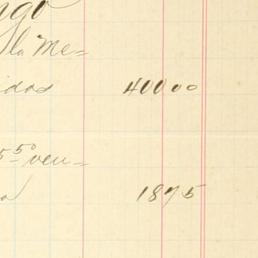 ngo
la Me=
idas 400 00
5 5º ven=
a 18 75